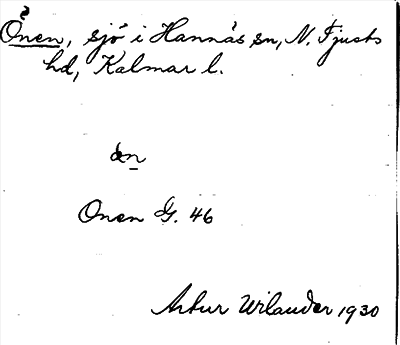 Önen, sjö i Hannäs sn, N. Tjusts
hd, Kalmar l.
Onen G. 46
Artur Wilander 1930